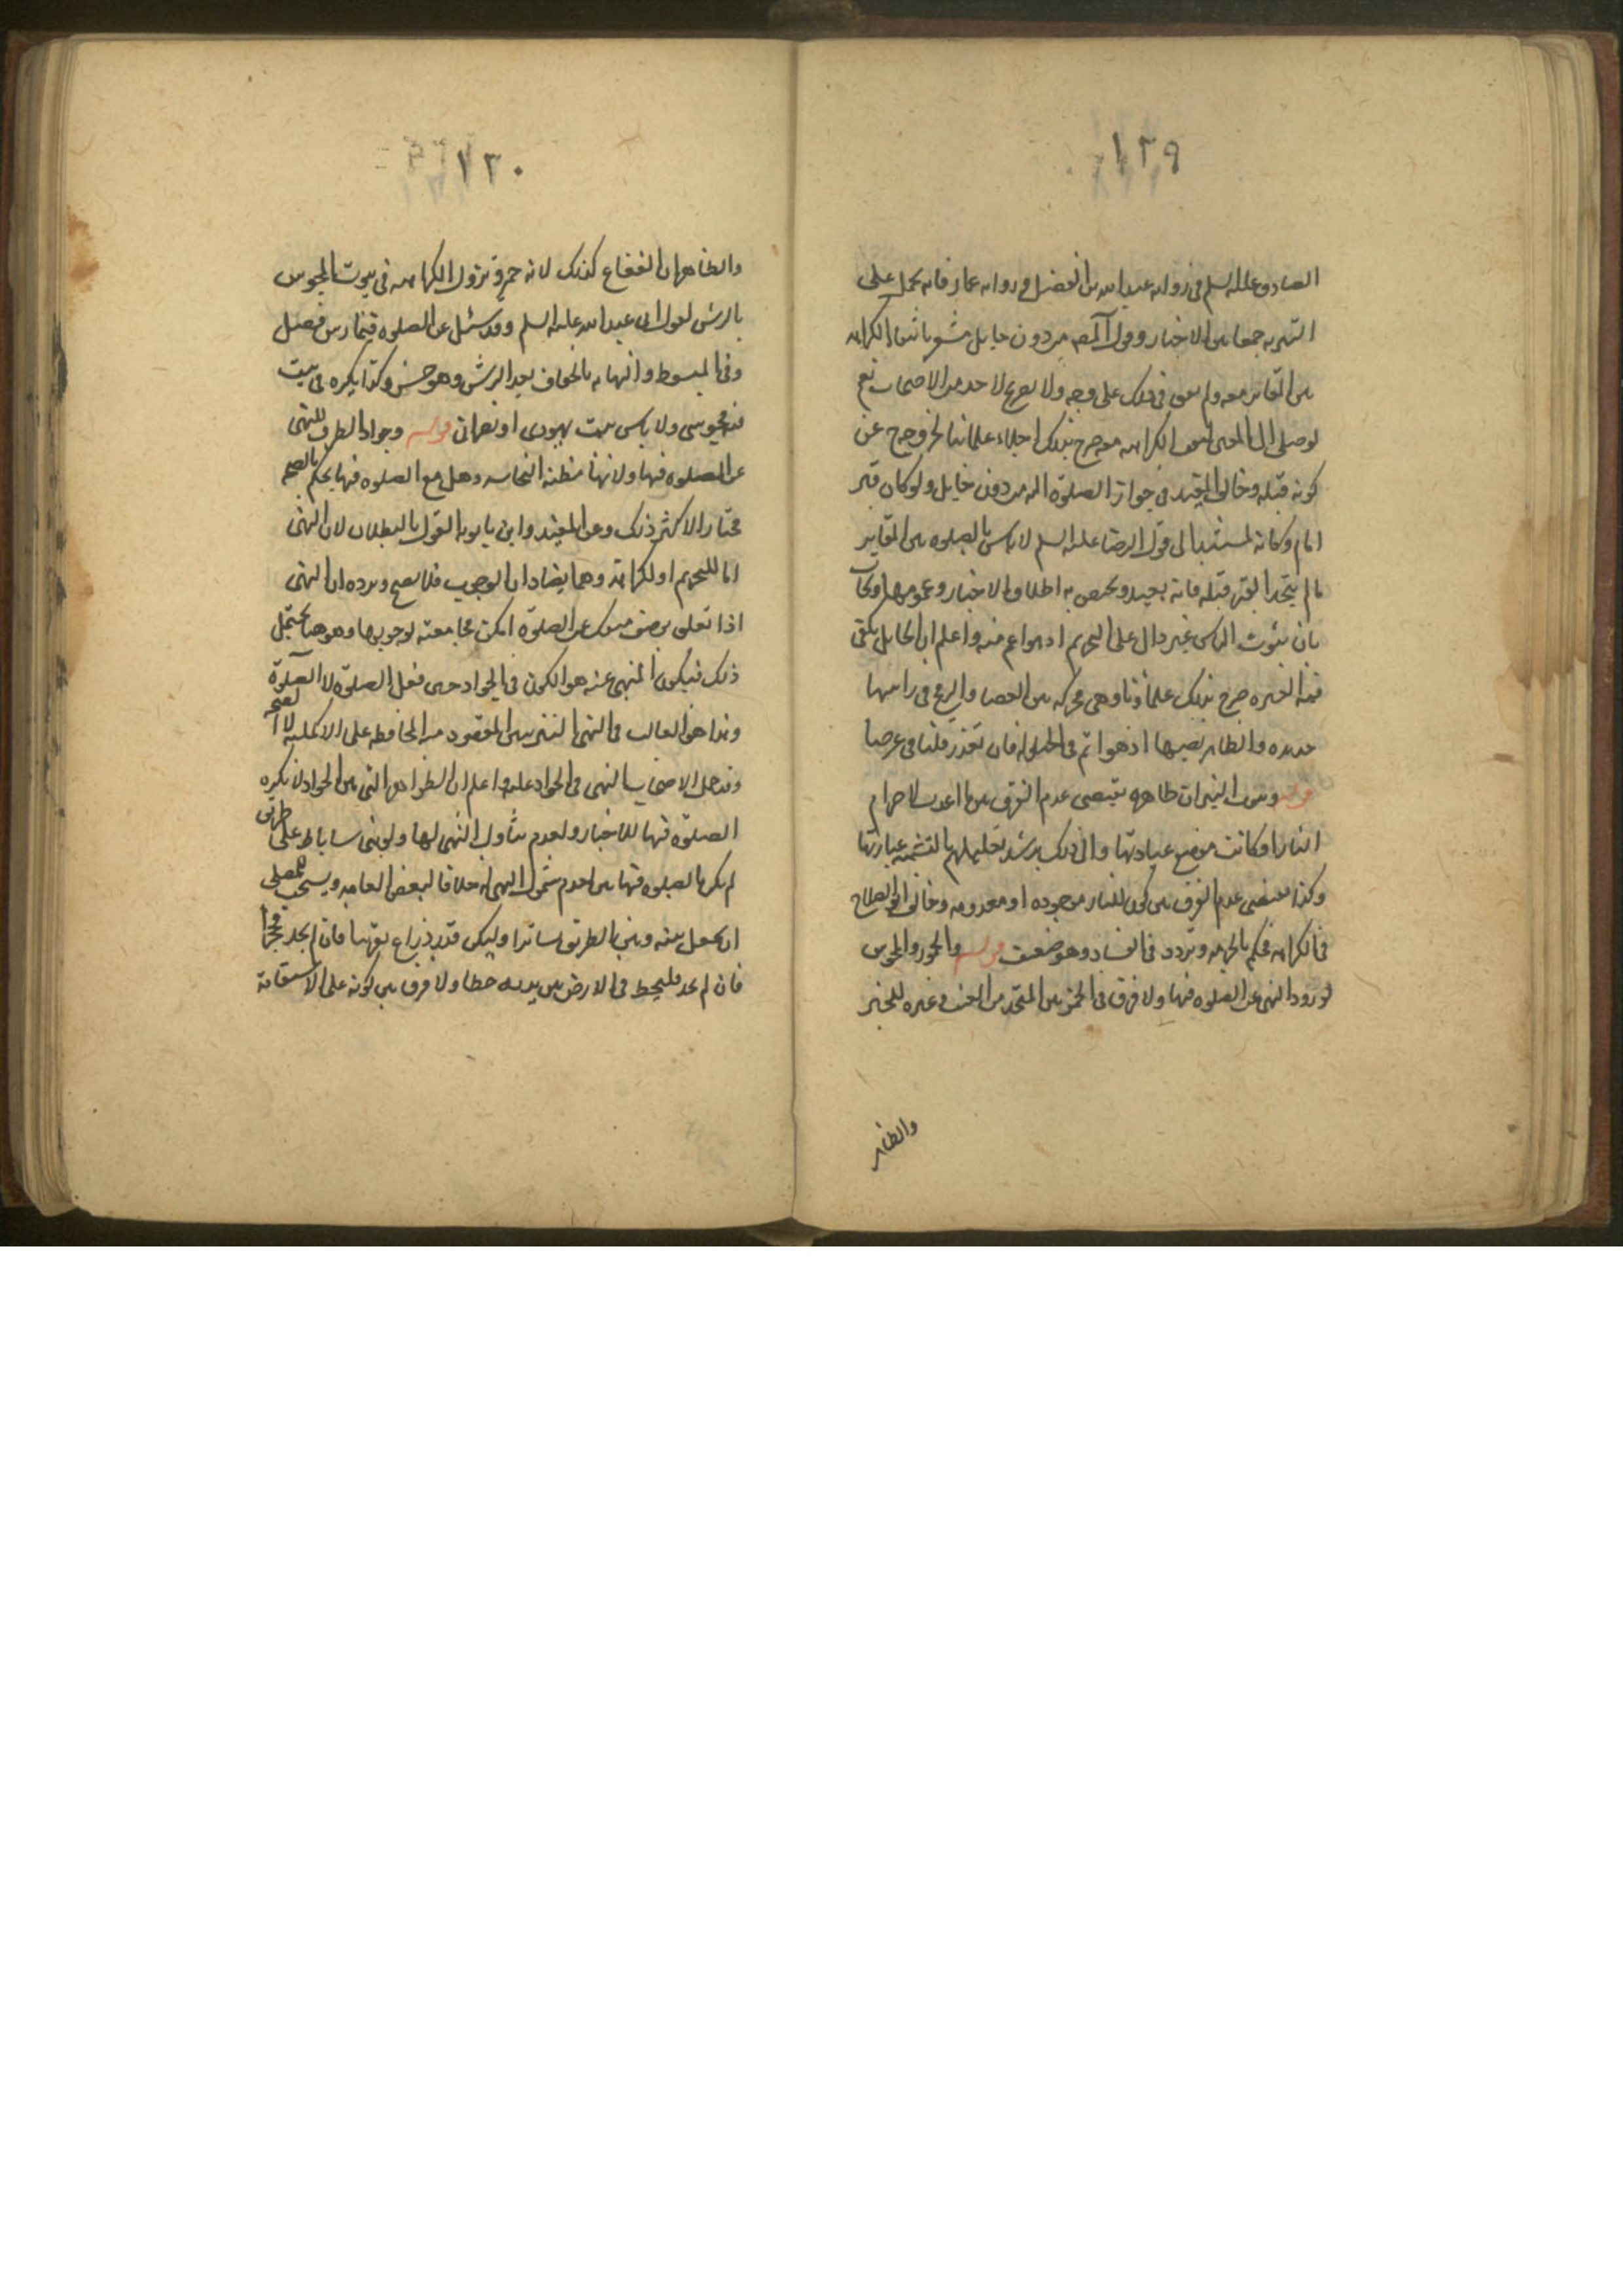 ١٢٩
الصادق عليه السلم في رواية عبد الله بن الفضل و رواية عمار فانه يحمل على
التنزيه جمعا بين الاخبار وقول المص من دون حايل مشعر بانتفاء الكراهة
بين المقابر معه ولم نقف في ذلك على وجه ولا تصريح لاحد من الاصحاب نعم
لو صلى الى القبر انتفت الكراهة معه صرح بذلك اجلاء علمائنا لخروجه عن
كونه قبلة وخالف المفيد في جواز الصلوة اليه من دون حايل ولو كان قبر
امام وكانه استند الى قول الرضا عليه السلم لا باس بالصلوة بين المقابر
ما لم يتخذ القبر قبلة فانه بعيد ويخص به اطلاق الاخبار وعمومها ويجاب
بان ثبوت الباس غير دال على التحريم اذ هو اعم منه واعلم ان الحايل يكفي
فيه العنزة صرح بذلك علماؤنا وهي محركة بين العصا والرمح في راسها
حديدة والظاهر نصبها اذ هو اتم في الحيلولة فان تعذر فلقا في عرضا
قوله وبيوت النيران ظاهره يقتضي عدم الفرق بين ما اعدت لاضرام
النار او كانت موضع عبادتها والى ذلك يرشد تعليلهم بالتشبه بعبادتها
وكذا مقتضى عدم الفرق بين كون النار موجودة او معدومة وخالف ابو الصلاح
في الكراهة فحكم بالحرمة وتردد في الفساد وهو ضعيف قوله والخمور والمجوس
لورود النهي عن الصلوة فيها ولا فرق في الخمر بين المتخذ من العنب وغيره للخبر
والظاهر
١٣٠
والظاهر ان الفقاع كذلك لانه خمر وتزول الكراهة في بيوت المجوس
بالرش لقول ابي عبد الله عليه السلم وقد سئل عن الصلوة فيها رش وصل
وفي المبسوط والنهاية بالجفاف بعد الرش وهو حسن وكذا يكره في بيت
فيه مجوسي ولا باس ببيت يهودي او نصراني قوله وجواد الطرق للنهي
عن الصلوة فيها ولانها مظنة النجاسة وهل مع الصلوة فيها يحكم بالصحة
مختار الاكثر ذلك وعن المفيد وابن بابويه القول بالبطلان لان النهي
اما للتحريم او لكراهة وهما يضادان الوجوب فلا يصح ويرده ان النهي
اذا تعلق بوصف منفك عن الصلوة امكن مجامعته لوجوبها وهو هنا يحتمل
ذلك فيكون المنهي عنه هو الكون في الجواد حين فعل الصلوة لا الصلوة
وهذا هو الغالب في النهي التنزيهي المقصود منه المحافظة على الاكملية لا الصحة
وقد حمل الاصحاب النهي في الجواد عليه واعلم ان الظواهر التي بين الجواد لا يكره
الصلوة فيها للاخبار ولعدم تناول النهي لها ولو بنى ساباط على طريق
لم يكره الصلوة فيها بين لعدم شمول النهي له خلافا لبعض العامة ويستحب للمصلي
ان يجعل بينه وبين الطريق ساترا وليكن قدر ذراع تقريبا فان لم يجد فحجرا
فان لم يجد فليخط في الارض بين يديه خطا ولا فرق بين كونه على الاستقامة